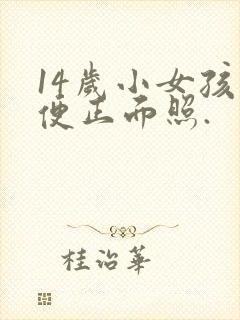 14歲小女孩
便正而照.
桂治華